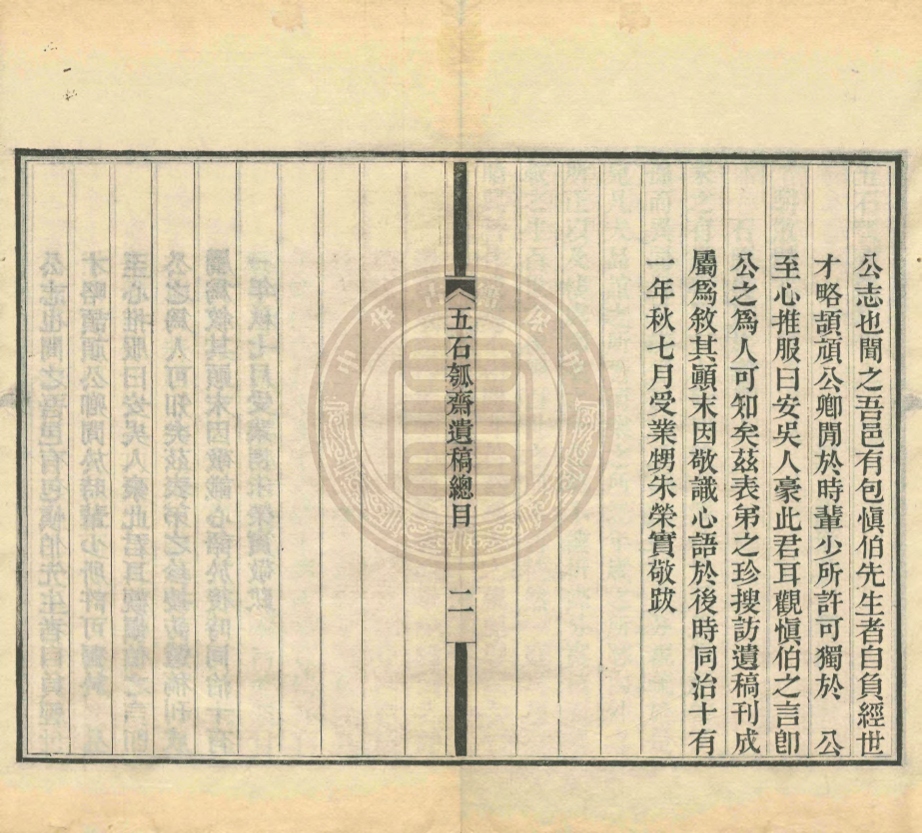 公志也聞之吾邑有包愼伯先生者自負經世
才略頡頏公卿閒於時輩少所許可獨於　公
至心推服曰安吳人豪此君耳觀愼伯之言卽
公之爲人可知矣茲表弟之珍搜訪遺稿刊成
屬爲敘其顚末因敬識心語於後時同治十有
一年秋七月受業甥朱榮實敬跋
五石瓠齋遺稿總目　二